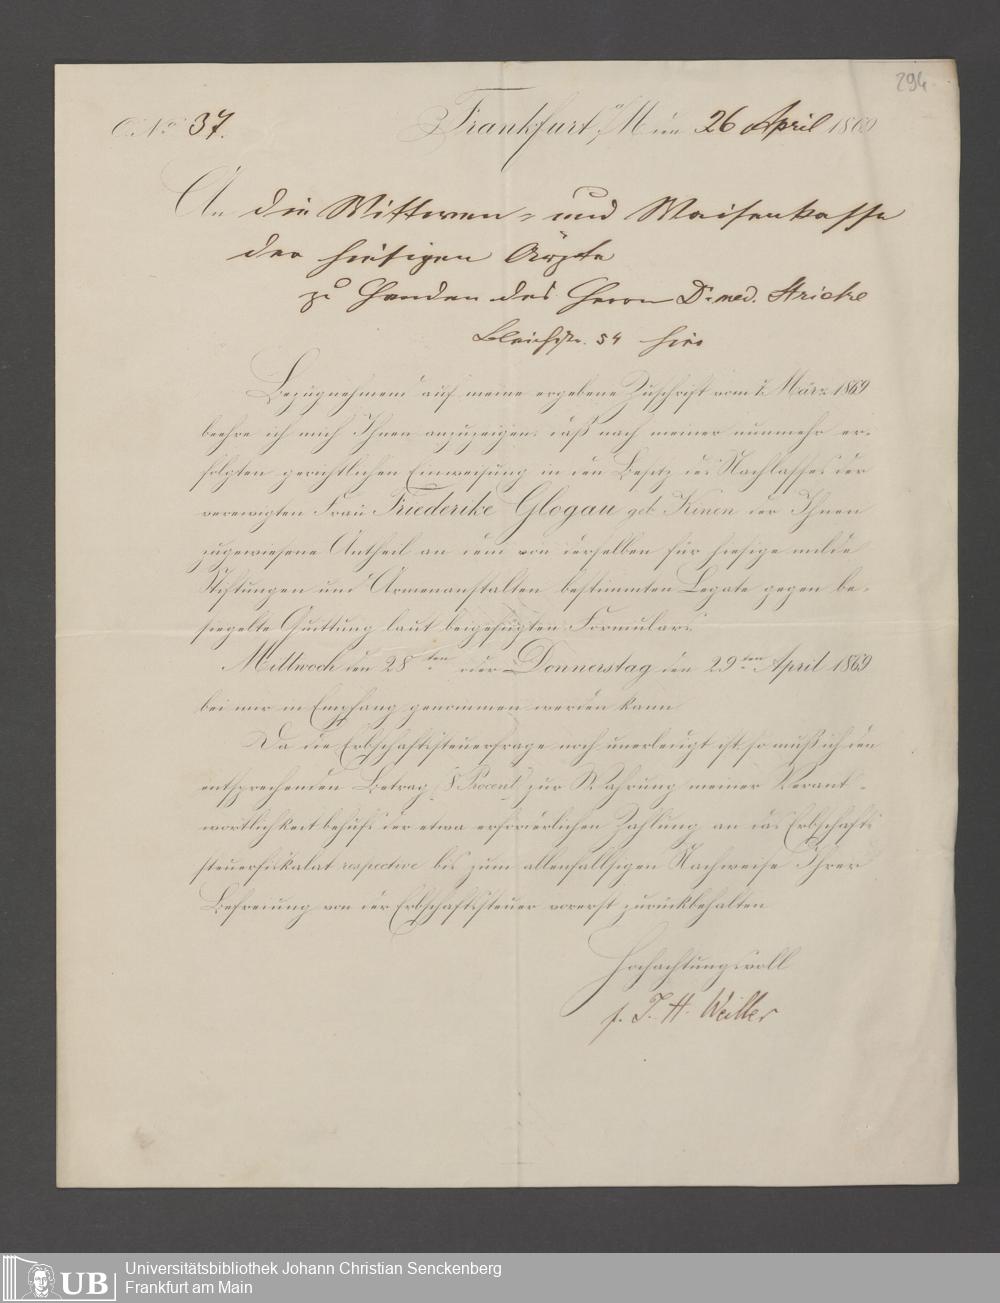 294
O. No. 37.
Frankfurt a/M den 26 April 1869
An die Wittwen- und Waisenkasse
der hiesigen Ärzte
zu Handen des Herrn Dr. med. Stricke
Bleichstr. 54 hier
Bezugnehmend auf meine ergebene Zuschrift vom März 1869
beehre ich mich Ihnen anzuzeigen, daß nach meiner nunmehr er-
folgten gerichtlichen Einweisung in den Besitz des Nachlasses der
verewigten Frau Friederike Glogau geb. Kinen der Ihnen
zugewiesene Antheil an dem von derselben für hiesige milde
Stiftungen und Armenanstalten bestimmten Legate gegen be-
siegelte Quittung laut beigefügten Formulars
Mittwoch den 28ten oder Donnerstag den 29ten April 1869
bei mir in Empfang genommen werden kann
Da die Erbschaftssteuerfrage noch unerledigt ist, so muß ich den
entsprechenden Betrag (8 Procent) zur Wahrung meiner Verant-
wortlichkeit behufs der etwa erforderlichen Zahlung an das Erbschafts
steuerfiskalat respective bis zum allenfallsigen Nachweise Ihrer
Befreiung von der Erbschaftssteuer vorerst zurückbehalten
Hochachtungsvoll
p. J. H. Weiller
UB
Universitätsbibliothek Johann Christian Senckenberg
Frankfurt am Main